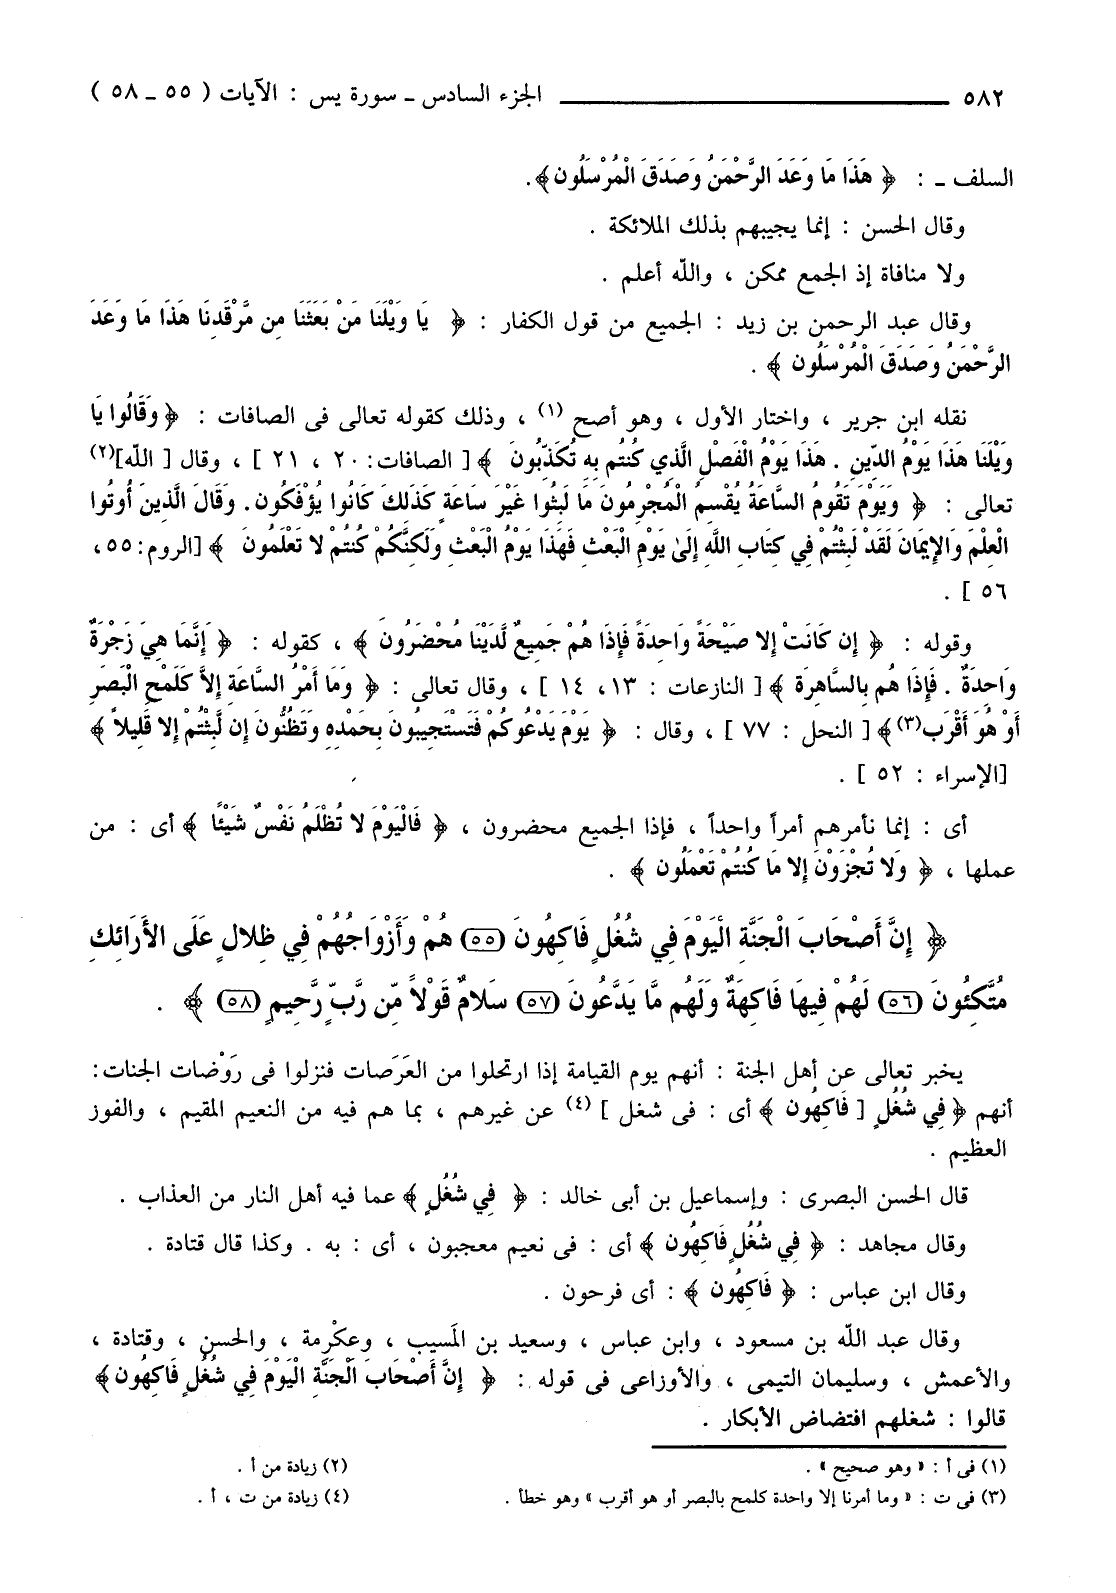 ٥٨٢ ــــــــــــــــ الجزء السادس ـ سورة يس : الآيات ( ٥٥ ـ ٥٨ )
السلف ـ : ﴿ هَذَا مَا وَعَدَ الرَّحْمَنُ وَصَدَقَ الْمُرْسَلُون﴾.
وقال الحسن : إنما يجيبهم بذلك الملائكة .
ولا منافاة إذ الجمع ممكن ، والله أعلم .
وقال عبد الرحمن بن زيد : الجميع من قول الكفار : ﴿ يَا وَيْلَنَا مَنْ بَعَثَنَا مِن مَّرْقَدِنَا هَذَا مَا وَعَدَ
الرَّحْمَنُ وَصَدَقَ الْمُرْسَلُون ﴾ .
نقله ابن جرير ، واختار الأول ، وهو أصح (١) ، وذلك كقوله تعالى فى الصافات : ﴿ وَقَالُوا يَا
وَيْلَنَا هَذَا يَوْمُ الدِّينِ . هَذَا يَوْمُ الْفَصْلِ الَّذِي كُنتُم بِهِ تُكَذِّبُونَ ﴾ [ الصافات: ٢٠ ، ٢١ ] ، وقال [ الله](٢)
تعالى : ﴿ وَيَوْمَ تَقُومُ السَّاعَةُ يُقْسِمُ الْمُجْرِمُونَ مَا لَبِثُوا غَيْرَ سَاعَةٍ كَذَلِكَ كَانُوا يُؤْفَكُون. وَقَالَ الَّذِينَ أُوتُوا
الْعِلْمَ وَالإِيمَانَ لَقَدْ لَبِثْتُمْ فِي كِتَابِ اللَّهِ إِلَىٰ يَوْمِ الْبَعْثِ فَهَذَا يَوْمُ الْبَعْثِ وَلَكِنَّكُمْ كُنتُمْ لا تَعْلَمُونَ ﴾ [الروم: ٥٥،
٥٦ ] .
وقوله : ﴿ إِن كَانَتْ إِلا صَيْحَةً وَاحِدَةً فَإِذَا هُمْ جَمِيعٌ لَّدَيْنَا مُحْضَرُونَ ﴾ ، كقوله : ﴿ فَإِنَّمَا هِيَ زَجْرَةٌ
وَاحِدَةٌ . فَإِذَا هُم بِالسَّاهِرَة ﴾ [ النازعات : ١٣، ١٤ ] ، وقال تعالى : ﴿ وَمَا أَمْرُ السَّاعَةِ إِلاَّ كَلَمْحِ الْبَصَرِ
أَوْ هُوَ أَقْرَب(٣)﴾ [ النحل : ٧٧ ] ، وقال : ﴿ يَوْمَ يَدْعُوكُمْ فَتَسْتَجِيبُونَ بِحَمْدِهِ وَتَظُنُّونَ إِن لَّبِثْتُمْ إِلا قَلِيلاً ﴾
[الإسراء : ٥٢ ] .
أى : إنما نأمرهم أمراً واحداً ، فإذا الجميع محضرون ، ﴿ فَالْيَوْمَ لا تُظْلَمُ نَفْسٌ شَيْئًا ﴾ أى : من
عملها ، ﴿ وَلَا تُجْزَوْنَ إِلا مَا كُنتُمْ تَعْمَلُون ﴾ .
﴿ إِنَّ أَصْحَابَ الْجَنَّةِ الْيَوْمَ فِي شُغُلٍ فَاكِهُونَ (٥٥) هُمْ وَأَزْوَاجُهُمْ فِي ظِلالٍ عَلَى الأَرَائِكِ
مُتَّكِئُونَ (٥٦) لَهُمْ فِيهَا فَاكِهَةٌ وَلَهُم مَّا يَدَّعُونَ (٥٧) سَلامٌ قَوْلاً مِّن رَّبٍّ رَّحِيمٍ (٥٨) ﴾ .
يخبر تعالى عن أهل الجنة : أنهم يوم القيامة إذا ارتحلوا من العَرَصات فنزلوا فى رَوْضات الجنات:
أنهم ﴿ فِي شُغُلٍ [ فَاكِهُون ﴾ أى : فى شغل ] (٤) عن غيرهم ، بما هم فيه من النعيم المقيم ، والفوز
العظيم .
قال الحسن البصرى : وإسماعيل بن أبى خالد : ﴿ فِي شُغُلٍ ﴾ عما فيه أهل النار من العذاب .
وقال مجاهد : ﴿ فِي شُغُلٍ فَاكِهُون ﴾ أى : فى نعيم معجبون ، أى : به . وكذا قال قتادة .
وقال ابن عباس : ﴿ فَاكِهُون ﴾ : أى فرحون .
وقال عبد الله بن مسعود ، وابن عباس ، وسعيد بن المَسيب ، وعكْرمة ، والحسن ، وقتادة ،
والأعمش ، وسليمان التيمى ، والأوزاعى فى قوله : ﴿ إِنَّ أَصْحَابَ الْجَنَّةِ الْيَوْمَ فِي شُغُلٍ فَاكِهُون ﴾
قالوا : شغلهم افتضاض الأبكار .
(١) فى أ : « وهو صحيح » .
(٢) زيادة من أ .
(٣) فى ت : « وما أمرنا إلا واحدة كلمح بالبصر أو هو أقرب » وهو خطأ .
(٤) زيادة من ت ، أ .